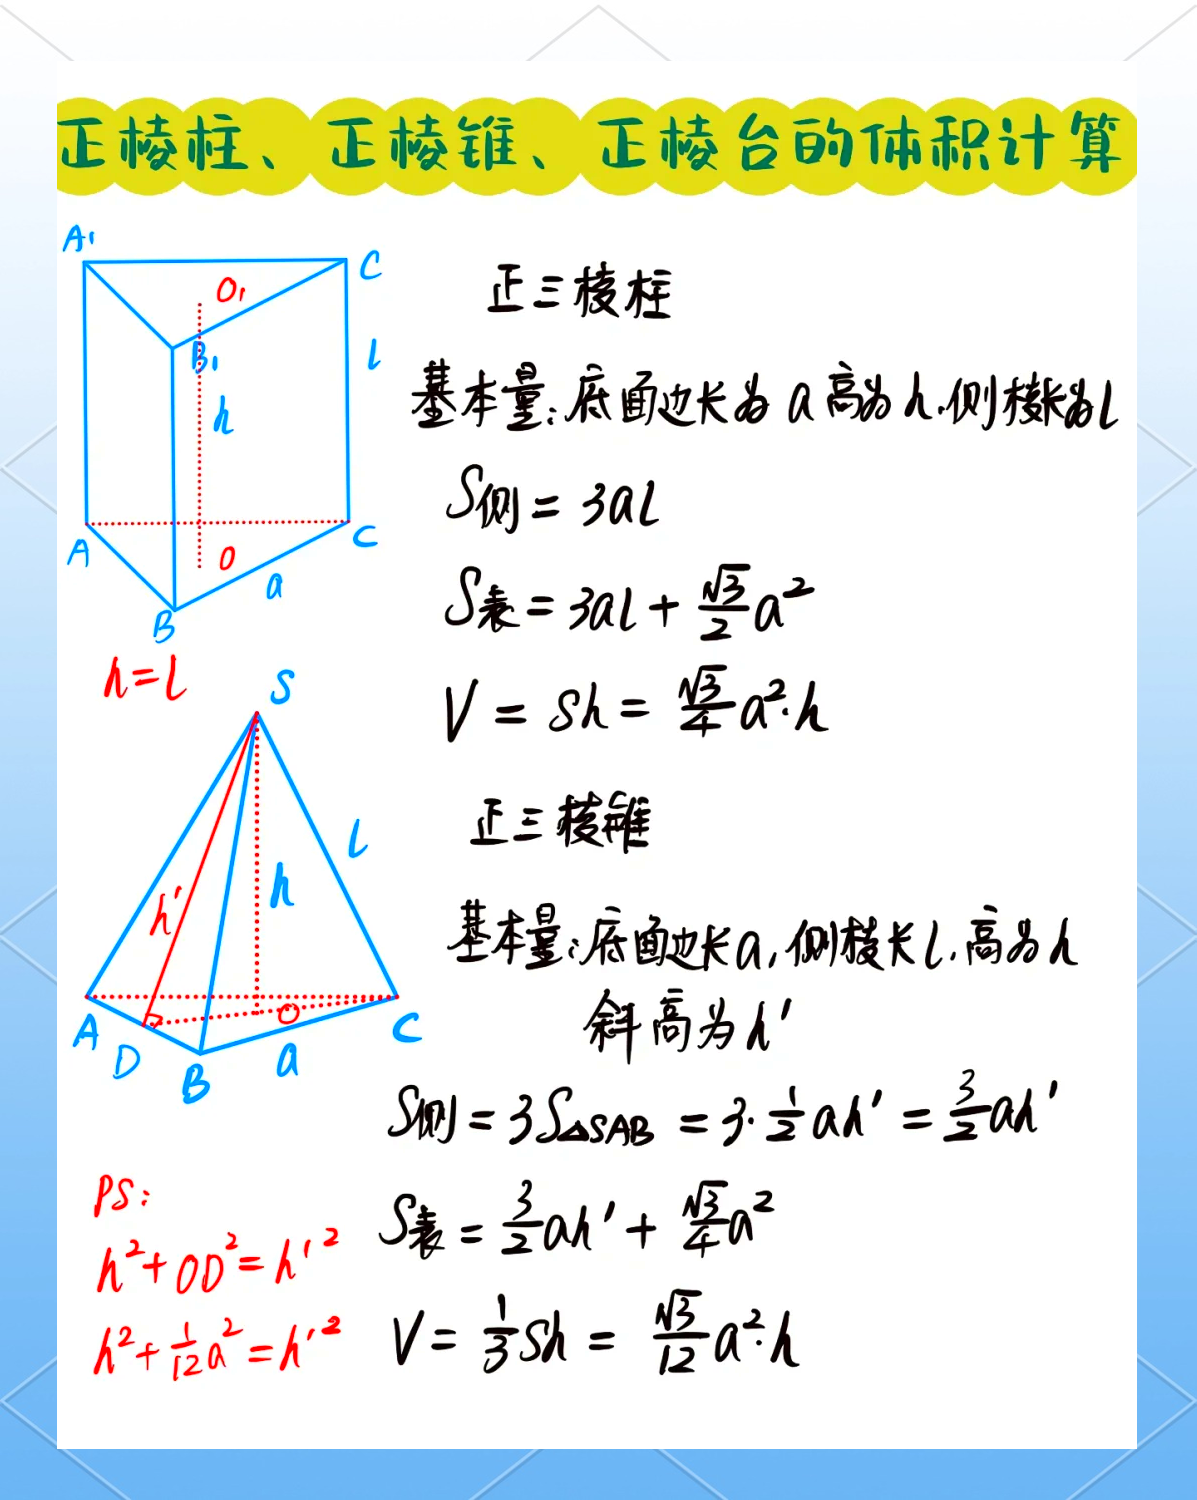 正棱柱、正棱锥、正棱台的体积计算
A₁
C
O₁
B₁
l
h
A
O
C
a
B
h=l
正三棱柱
基本量:底面边长为a高为h.侧棱长为l
S侧 = 3al
S表 = 3al + √3/2 a²
V = Sh = √3/4 a²·h
S
l
h
h'
A
D
B
O
a
C
正三棱锥
基本量:底面边长a,侧棱长l.高为h
斜高为h'
S侧 = 3S△SAB = 3·1/2 ah' = 3/2 ah'
S表 = 3/2 ah' + √3/4 a²
V = 1/3 Sh = √3/12 a²·h
PS:
h²+OD²=h'²
h²+1/12 a²=h'²